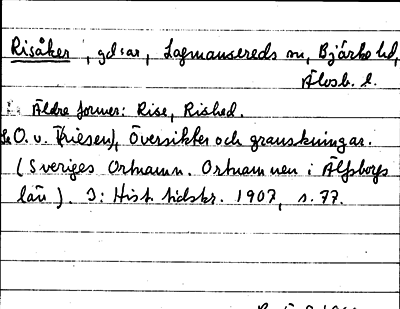 Risåker, gdsar, Lagmansereds sn, Bjärke hd,
Älvsb. l.
Äldre former: Rise, Rished.
Se O. v. Friesen, Översikter och granskningar.
(Sveriges Ortnamn. Ortnamnen i Älfsborgs
län). I: Hist. tidskr. 1907, s. 77.